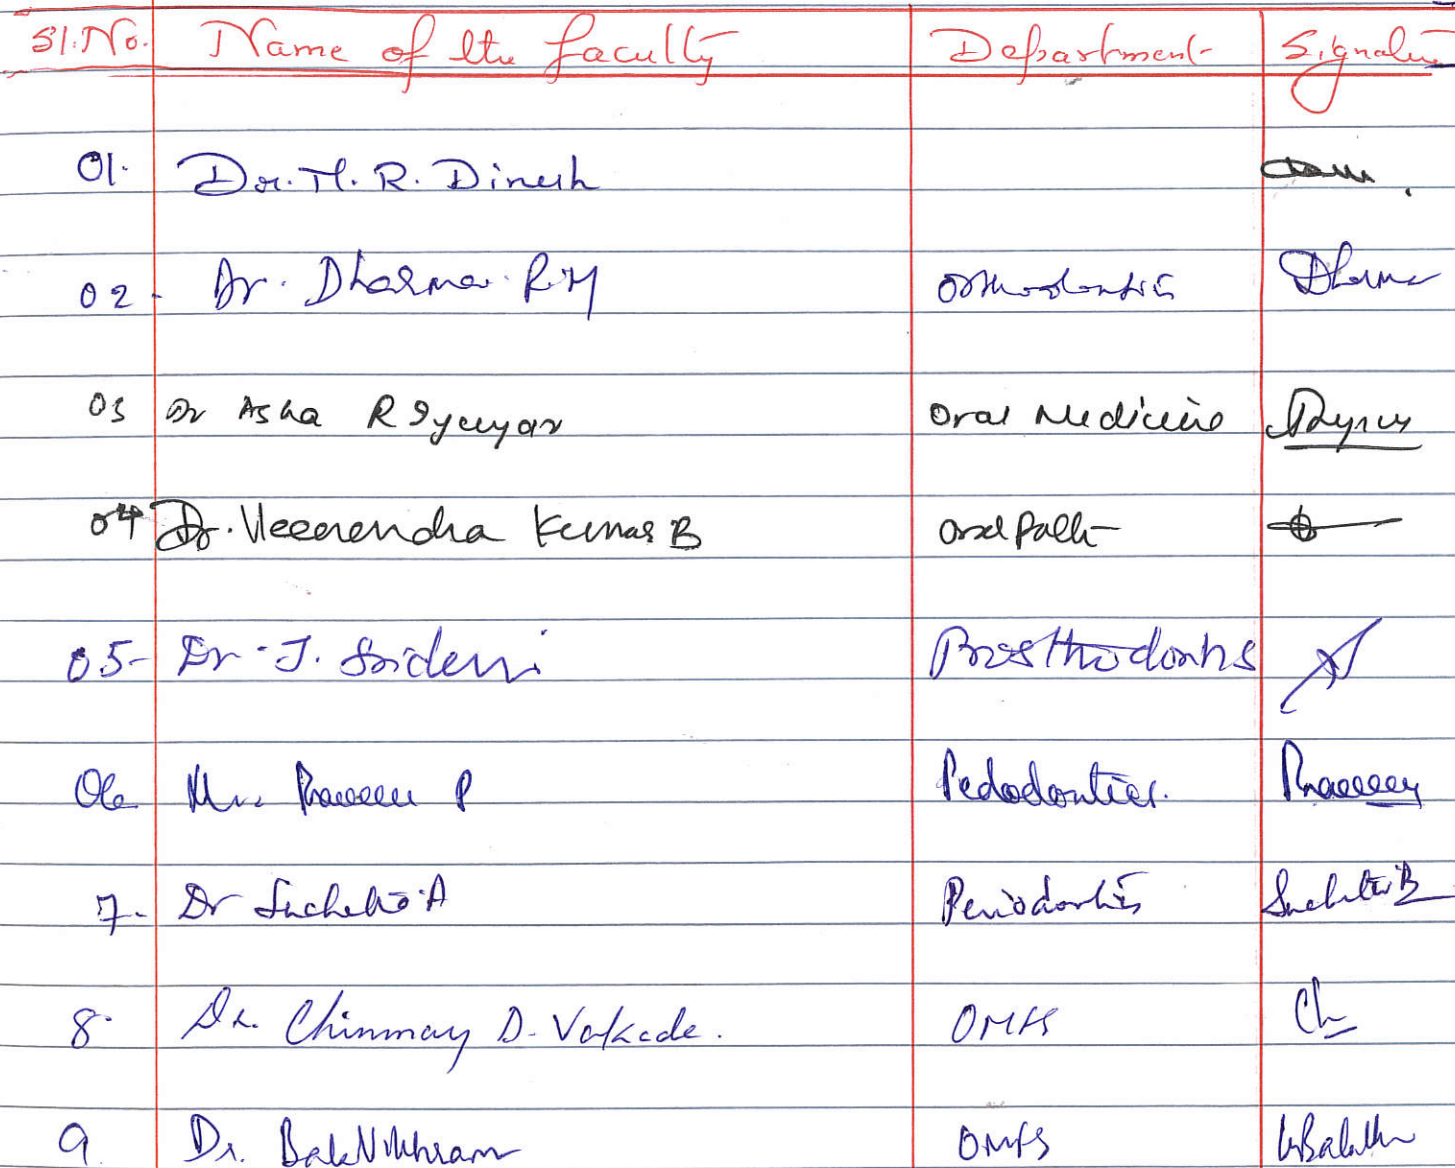 Sl.No. Name of the faculty Department Signature
01. Dr. M. R. Dinesh
02. Dr. Dharma R M Orthodontics Dharma
03 Dr Asha R Iyengar Oral Medicine
04 Dr. Veerendra Kumar B Oral Path
05- Dr. J. Sridevi Prosthodontics
06 Praveen P Pedodontics. Praveen
7. Dr Suchetha A Periodontics Suchetha
8. Dr. Chinmay D. Vakade. OMFS Ch
9 Dr. Bala Vikhram OMFS